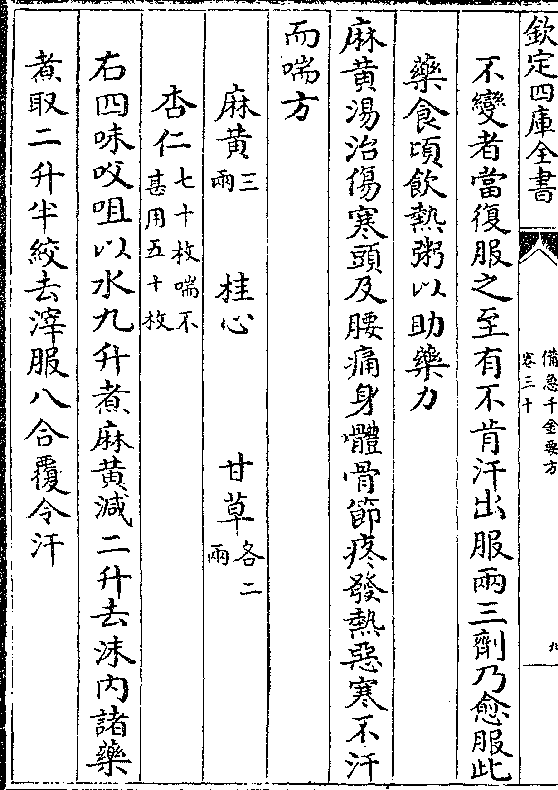 欽定四庫全書
備急千金要方
卷三十
九
不變者當復服之至有不肯汗出服兩三劑乃愈服此
藥食頃飲熱粥以助藥力
麻黃湯治傷寒頭及腰痛身體骨節疼發熱惡寒不汗
而喘方
麻黃三兩 桂心 甘草各二兩
杏仁七十枚喘不甚用五十枚
右四味㕮咀以水九升煮麻黃減二升去沫內諸藥
煮取二升半絞去滓服八合覆令汗